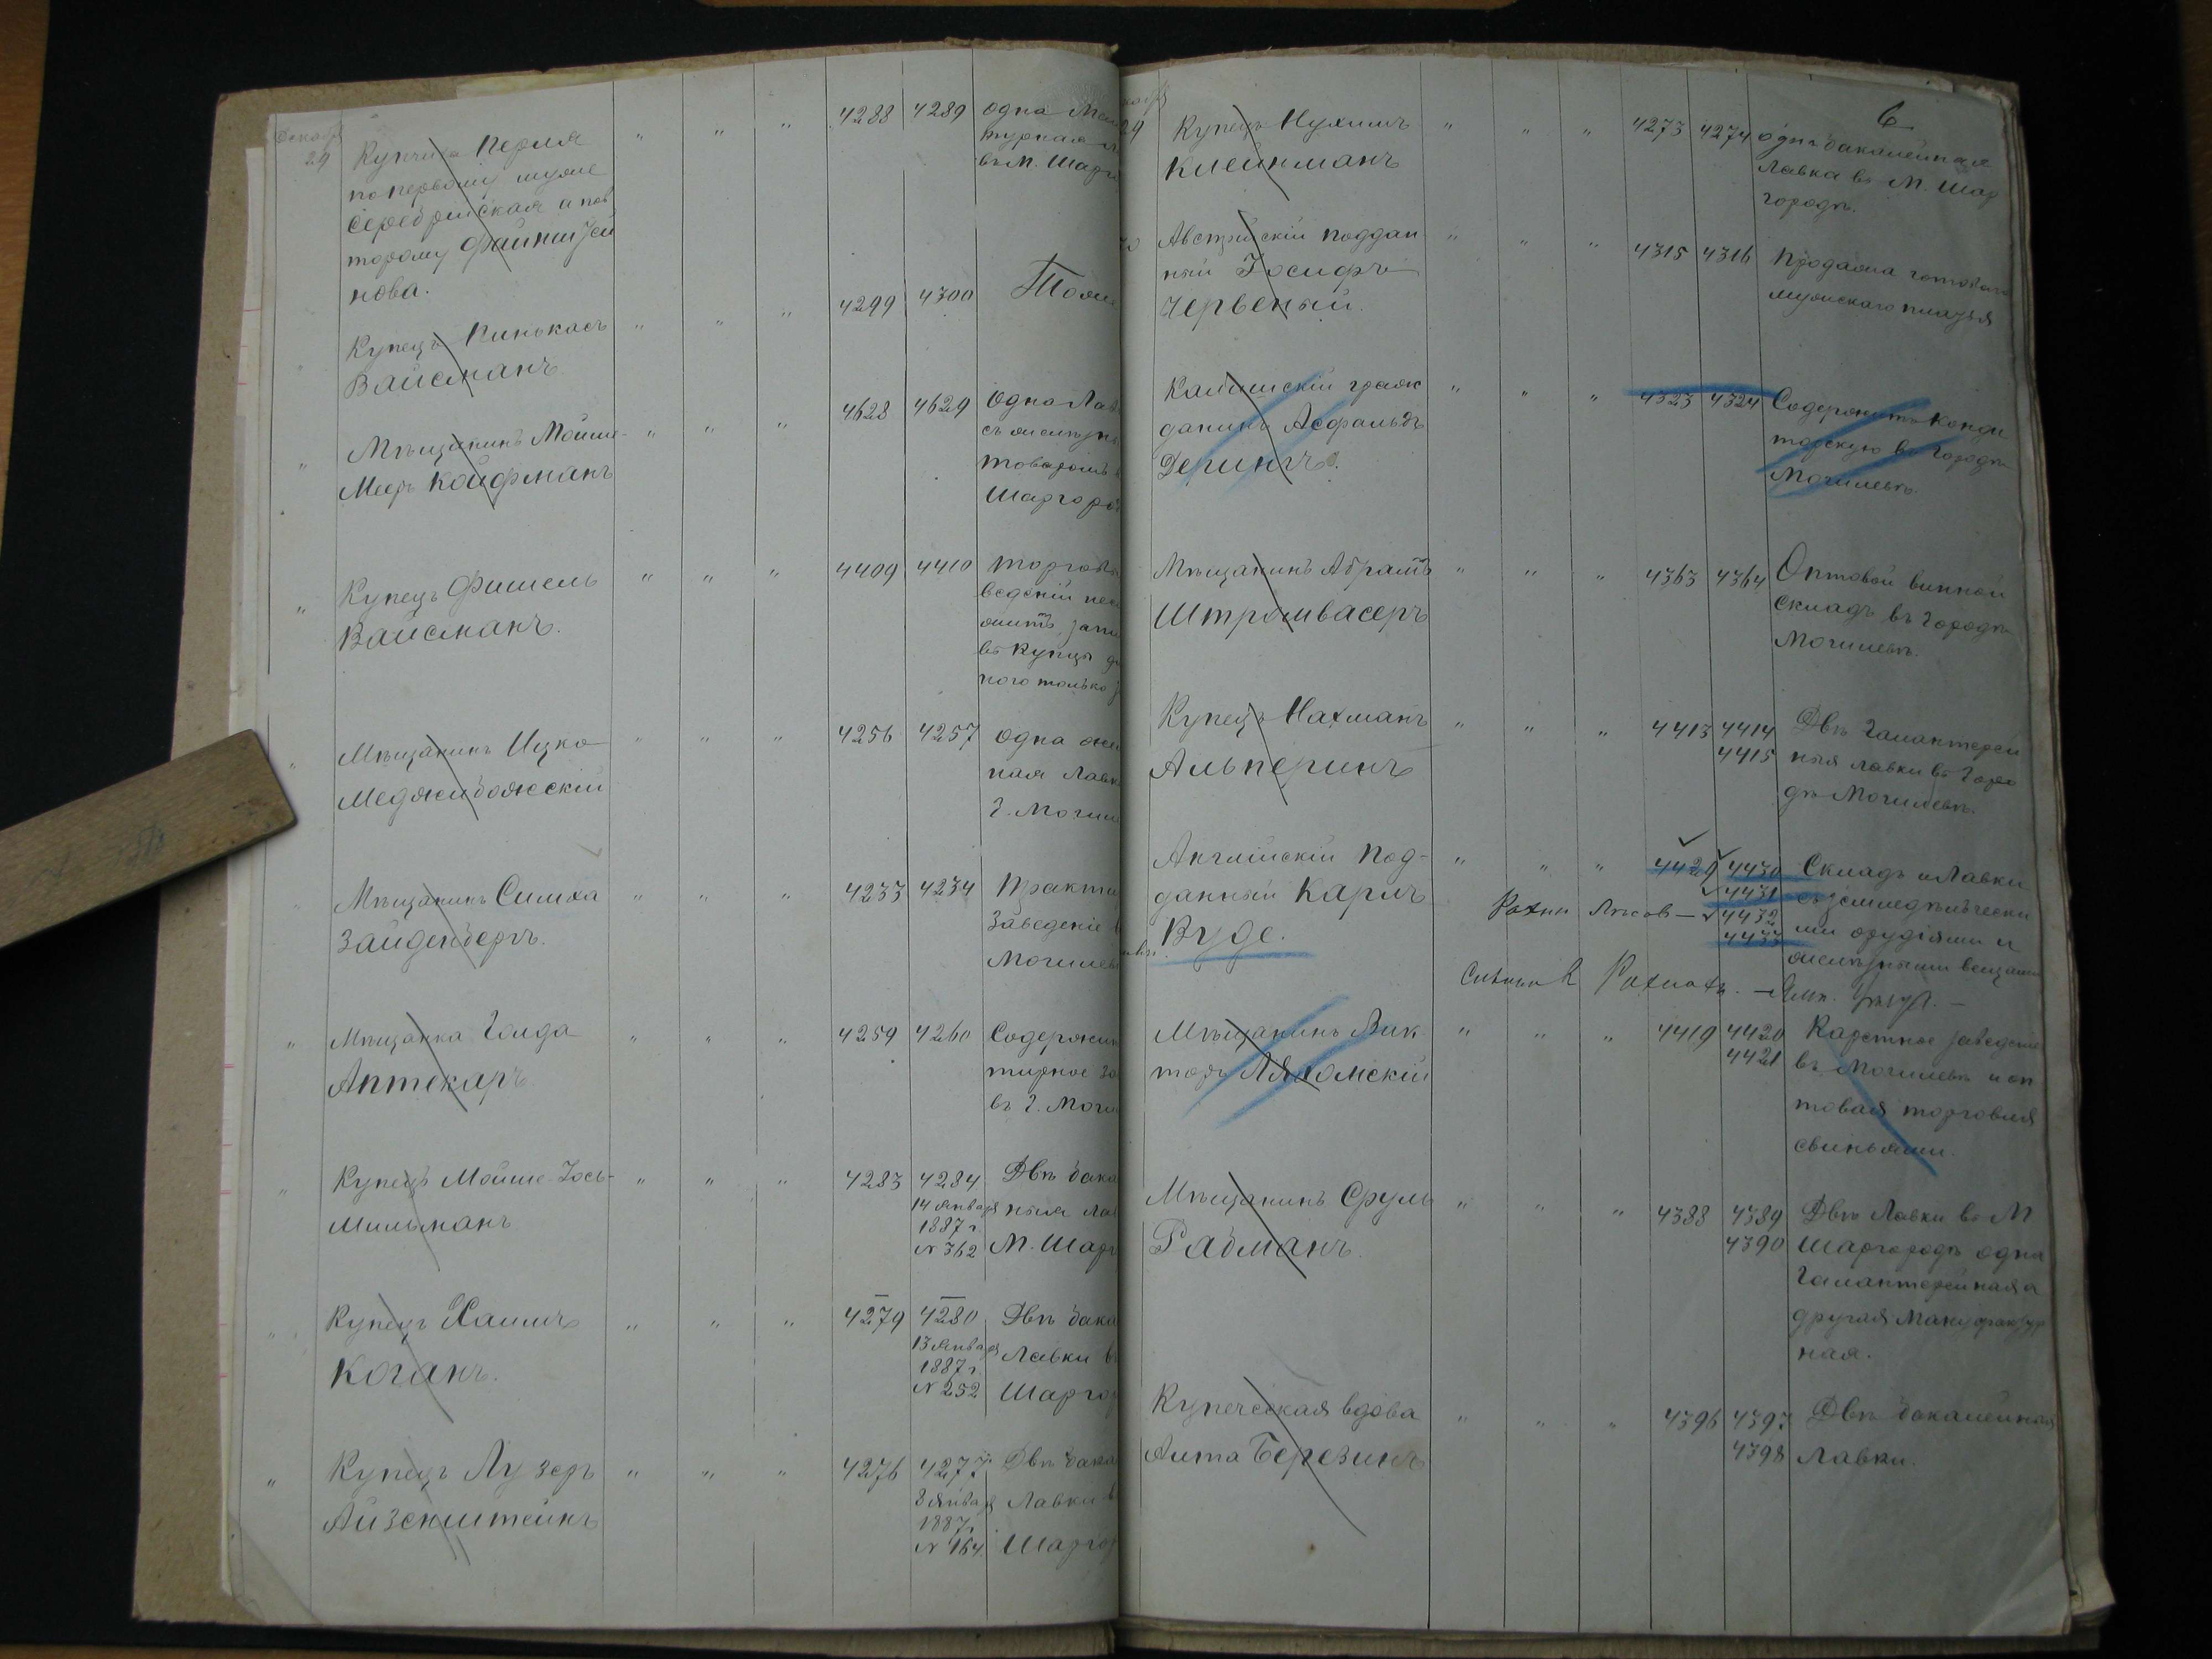 Декабр
29
Купчиха Перля
по первому муже
Серебрийская а по в
торому Файнштей
нова.
" " " 4288 4289
Одна Ма
турная л
въ М. Шарг
Купецъ Пинькасъ
Вайсманъ.
" " " 4299 4300
Тоже
" Мѣщанинъ Мойше-
Мееръ Койфманъ
" " " 4628 4629
Одна Лав
съ желѣзн
товаромъ в
Шаргоро
" Купецъ Фишель
Вайсманъ.
" " " 4409 4410
Торгов
веденій не
житъ, зап
въ купцы
ного только
" Мѣщанинъ Ицко
Меджибожскій
" " " 4256 4257
Одна же
ная лавк
г. Могил
" Мѣщанинъ Симха
Зайденбергъ.
" " " 4233 4234
Тракти
Заведеніе в
Могилев
" Мѣщанка Голда
Аптекаръ
" " " 4259 4260
Содержи
тирное за
въ г. Моги
" Купецъ Мойше-Іось-
Мильманъ
" " " 4283 4284
14 Января
1887 г
№ 362
Двѣ бака
ныя ла
М. Шарг
" Купецъ Хаимъ
Коганъ.
" " " 4279 4280
13 Января
1887 г
№ 252
Двѣ бака
Лавки в
Шарго
" Купецъ Лузеръ
Айзенштейнъ
" " " 4276 4277
8 Января
1887 г.
№ 164
Двѣ бака
Лавки в
Шаргор
6
29
Купецъ Нухимъ
Клейнманъ
" " " 4273 4274
Одна бакалейная
Лавка въ М. Шар
городѣ.
Австрійскій поддан
ный Іосифъ
Червеный.
" " " 4315 4316
Продажа готоваго
мужскаго платья
Калишскій граж
данинъ Асфальдъ
Дерингъ.
" " " 4323 4324
Содержитъ Конди
торскую въ Городѣ
Могилевѣ.
Мѣщанинъ Абрамъ
Штромвасеръ
" " " 4363 4364
Оптовой винной
складъ въ Городѣ
Могилевѣ.
Купецъ Нахманъ
Альперинъ
" " " 4413 4414
4415
Двѣ Галантерей
ныя лавки въ Горо
дѣ Могилевѣ.
Англійскій Под-
данный Карлъ
Вуде.
" " " 4429 4430
4431
4432
4433
Складъ и Лавки
съ земледѣльчески
ми орудіями и
желѣзными вещами
Мѣщанинъ Вик
торъ Ляхомскій
" " " 4419 4420
4421
Каретное заведеніе
въ Могилевѣ и оп
товая торговля
свиньями.
Мѣщанинъ Сруль
Рабманъ.
" " " 4388 4389
4390
Двѣ Лавки въ М
Шаргородѣ одна
Галантерейная а
другая Мануфактур
ная.
Купеческая вдова
Аита Березинъ
" " " 4396 4397
4398
Двѣ бакалейныя
Лавки.